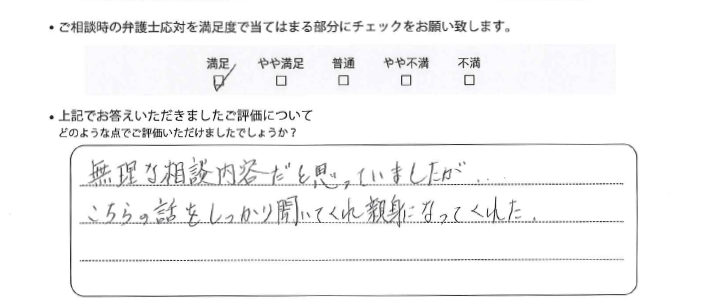 ・ご相談時の弁護士応対を満足度で当てはまる部分にチェックをお願い致します。
満足 やや満足 普通 やや不満 不満
・上記でお答えいただきましたご評価について
どのような点でご評価いただけましたでしょうか？
無理な相談内容だと思っていましたが...
こちらの話をしっかり聞いてくれ親身になってくれた.